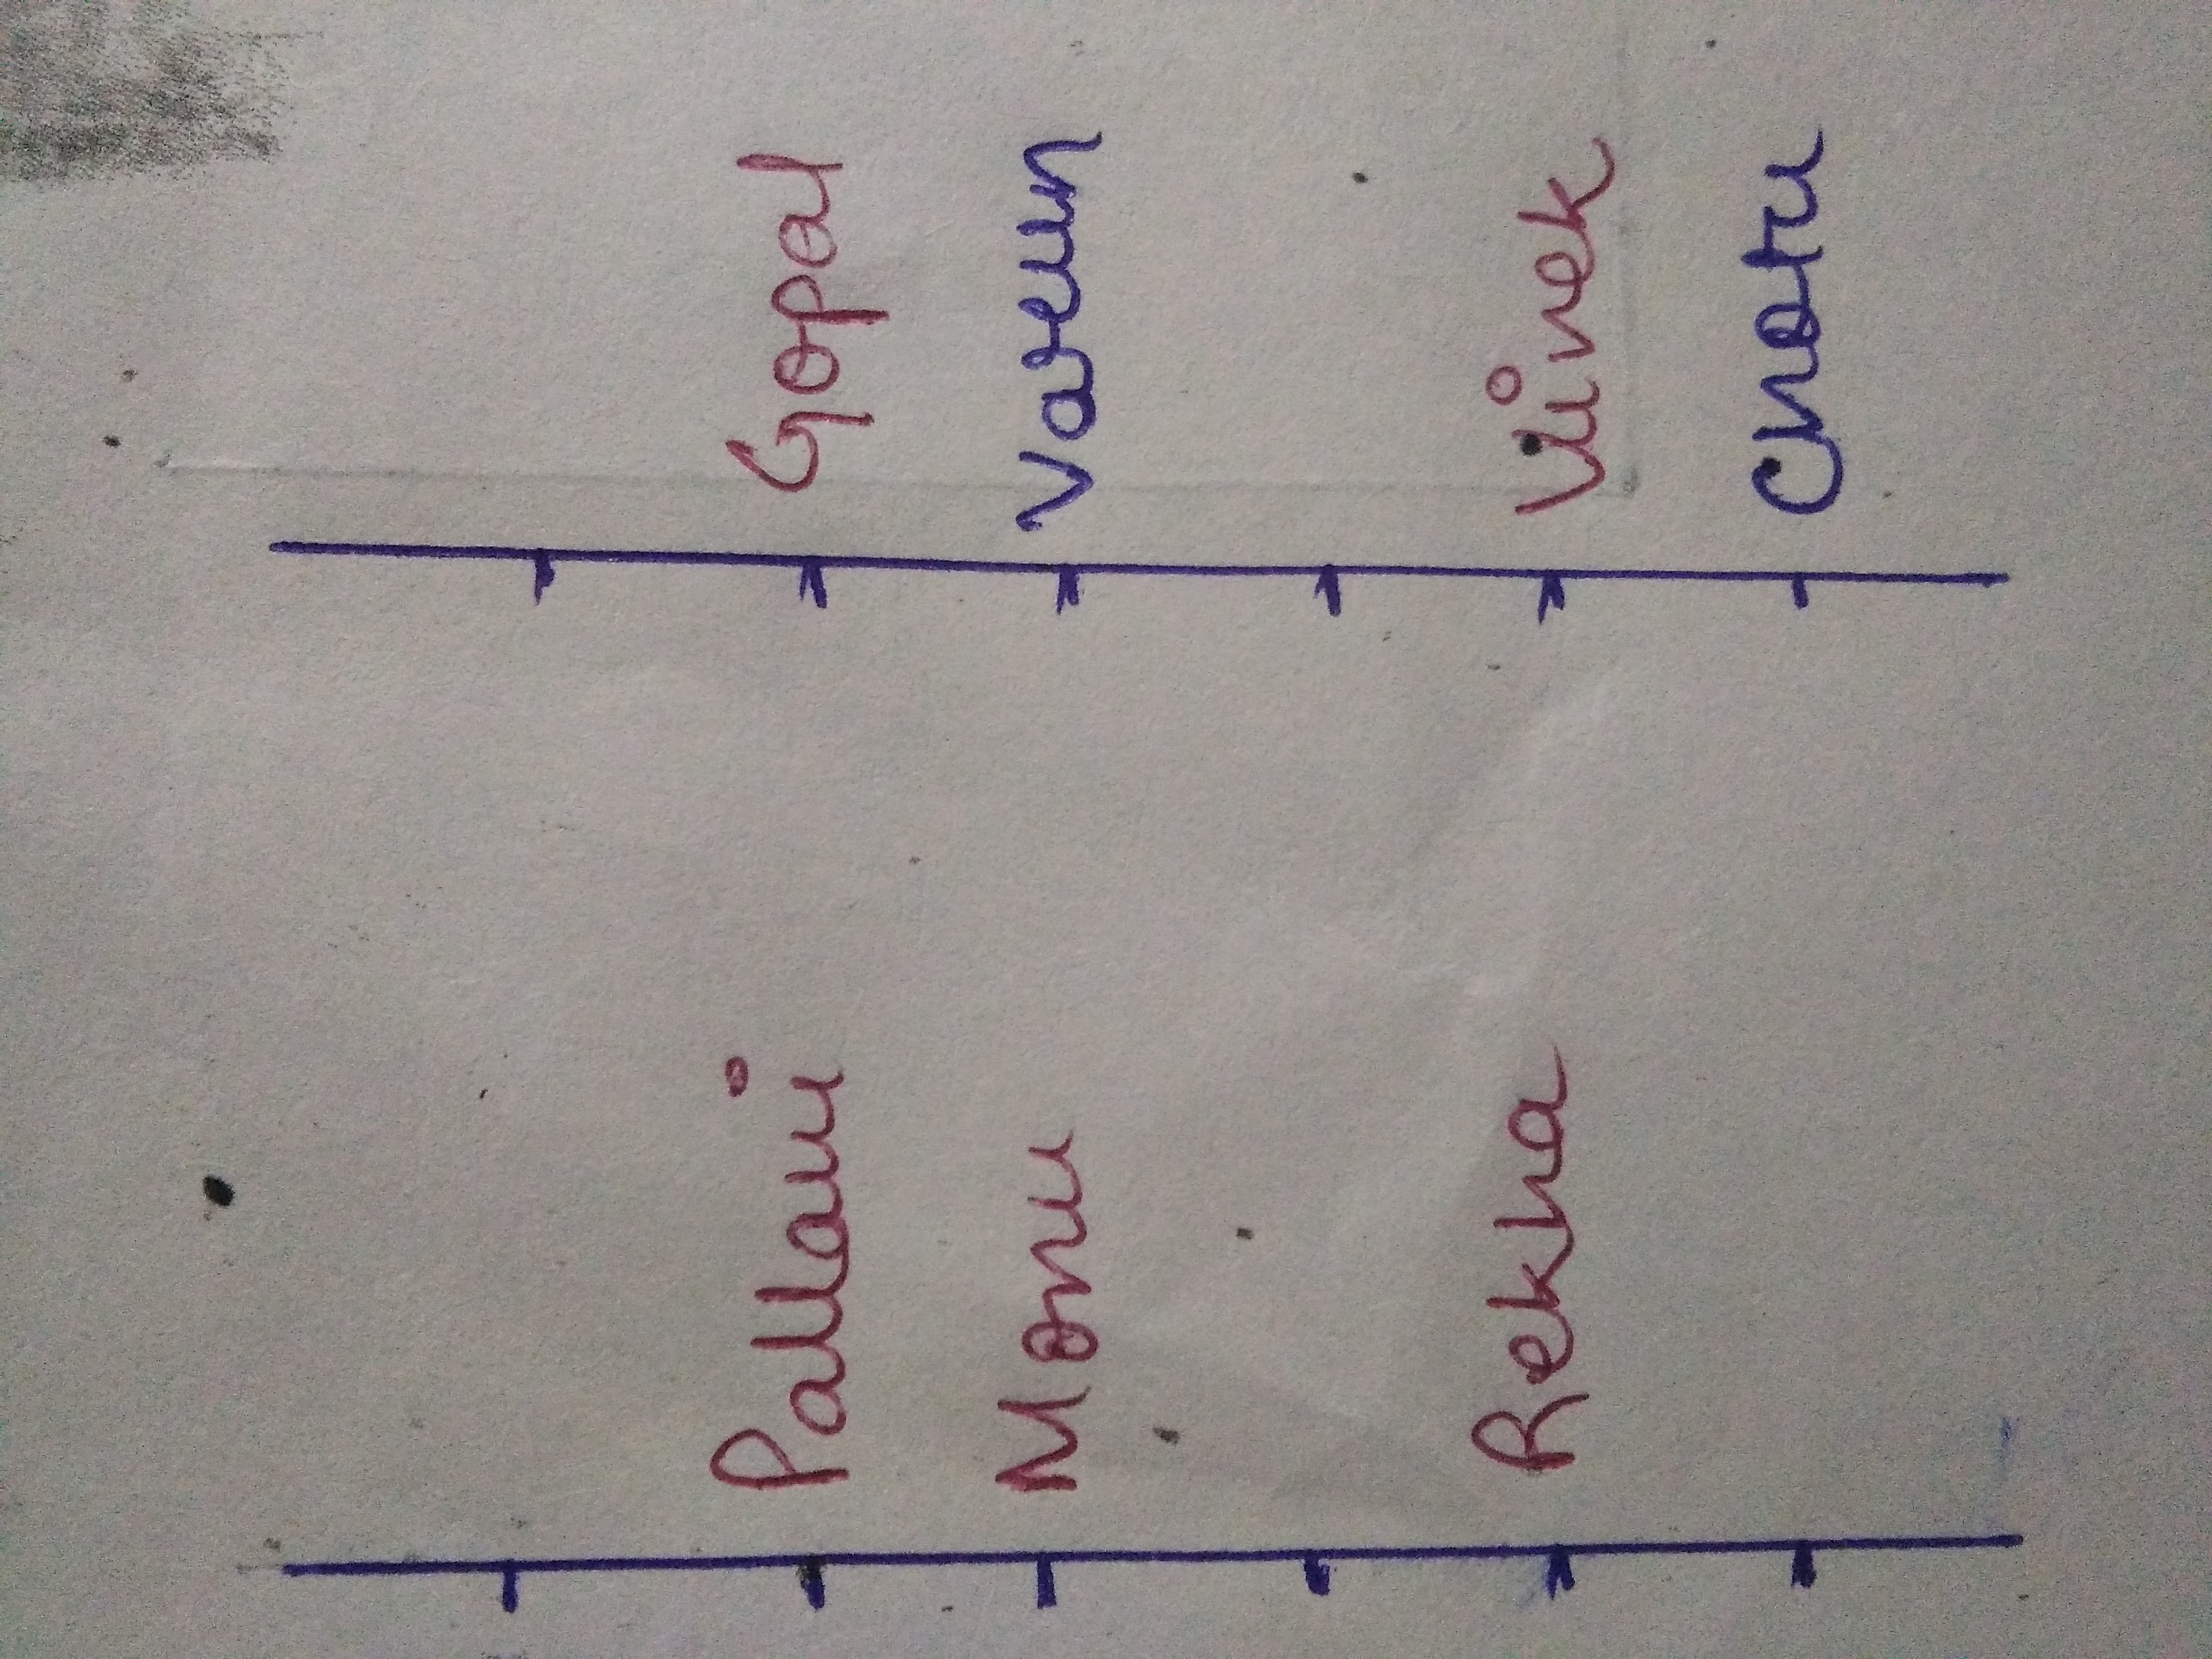 Pallavi
Gopal
Monu
Varun
Rekha
Vivek
Chotu